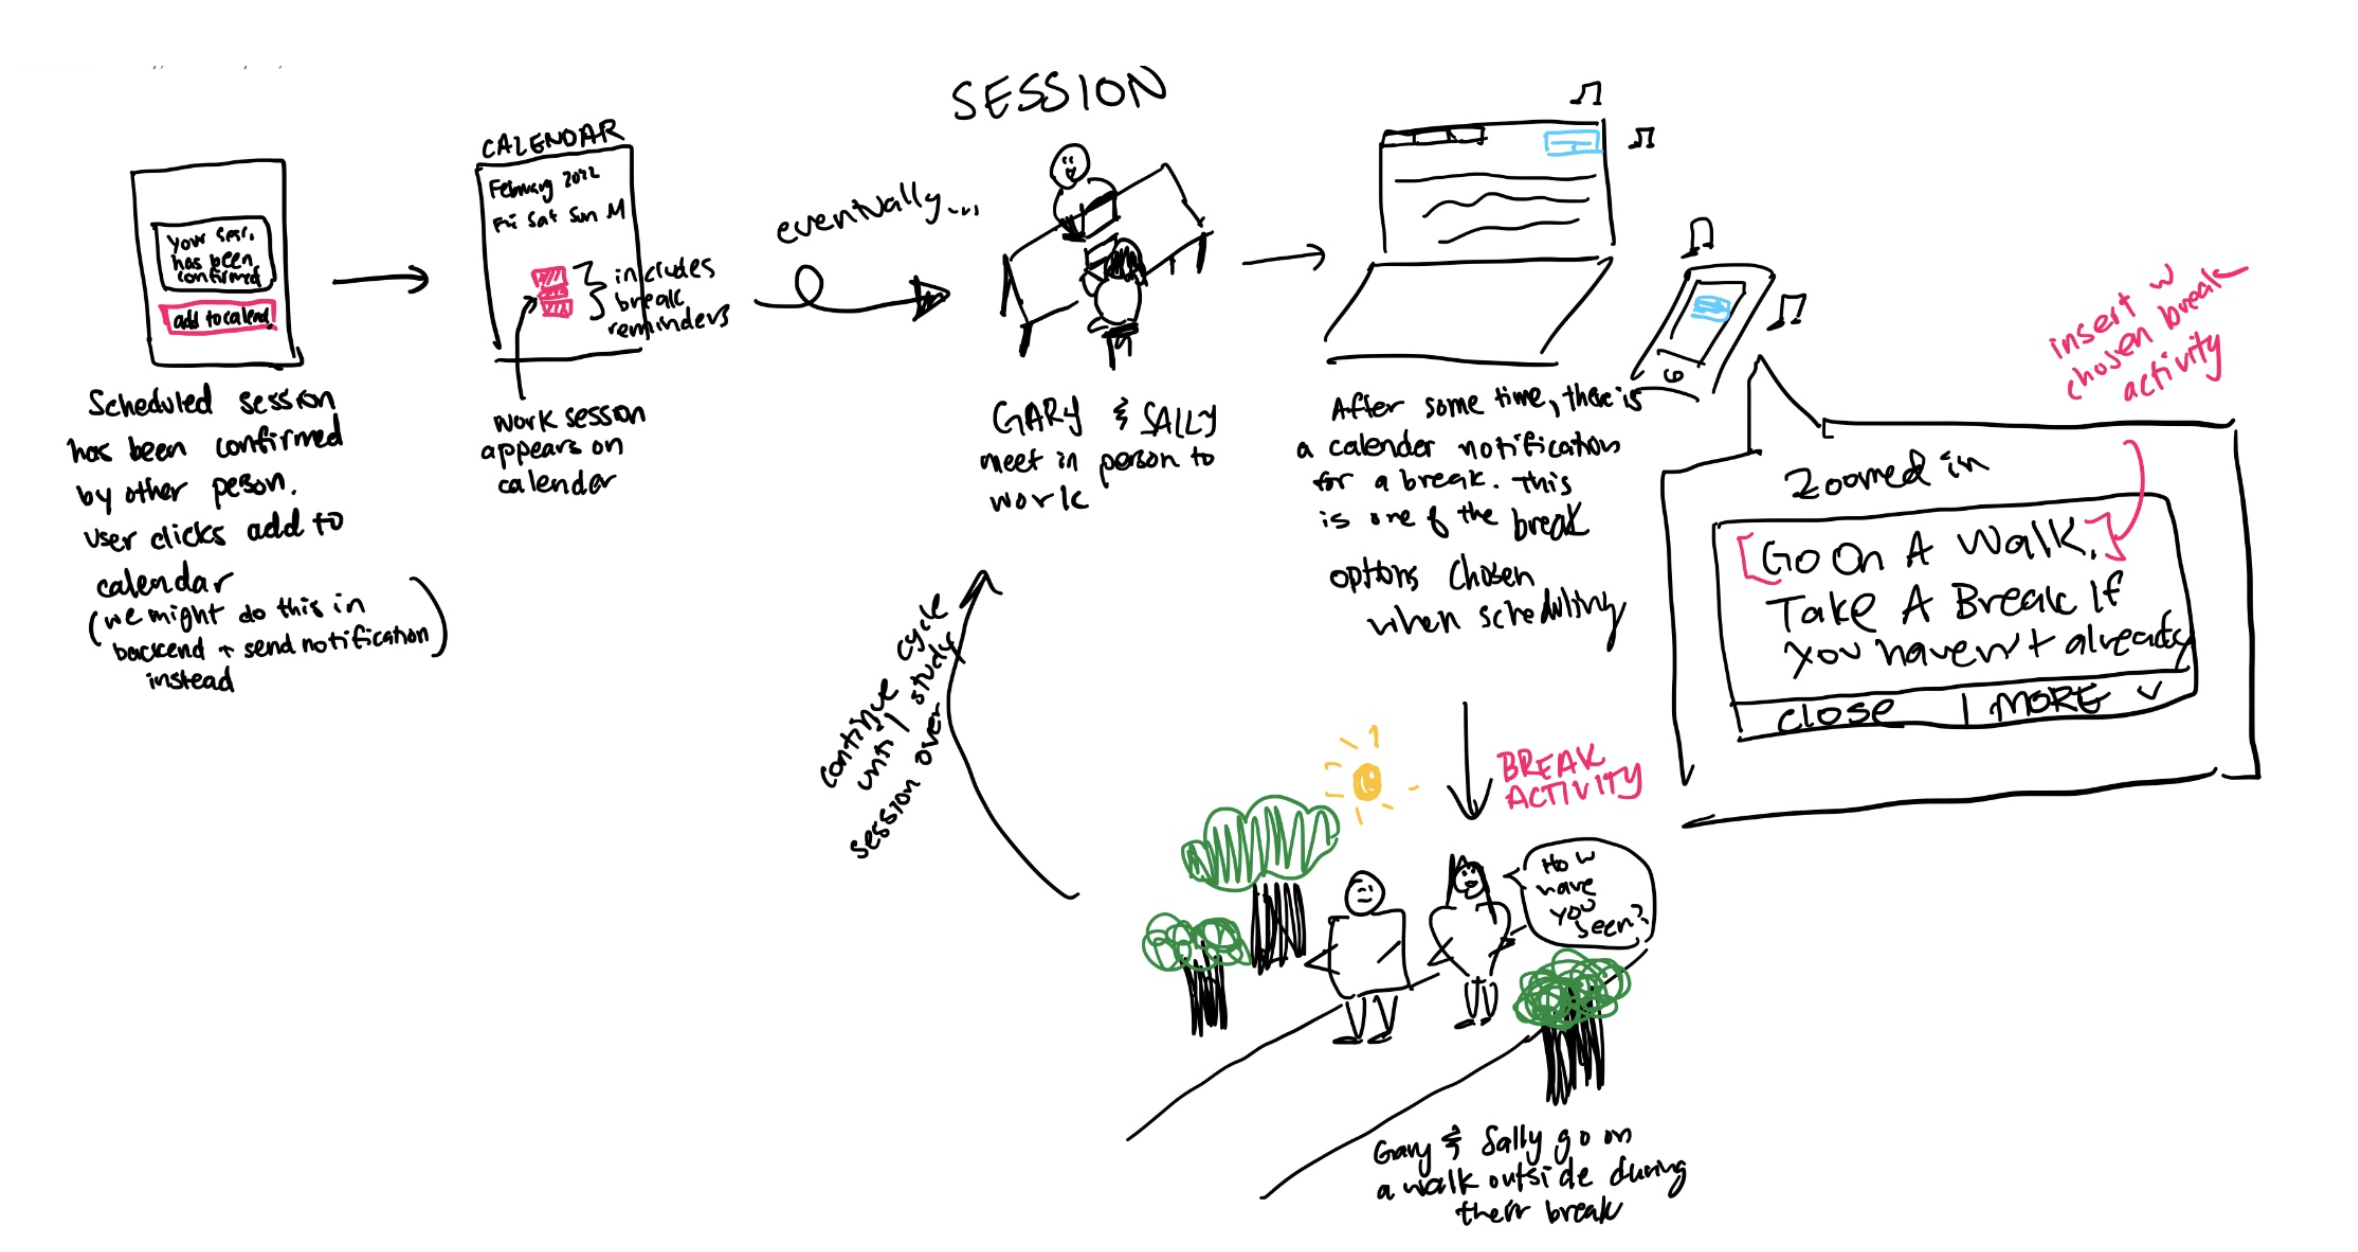 Your sess.
has been
confirmed
add to calend.
Scheduled session
has been confirmed
by other person.
User clicks add to
calendar
(we might do this in
backend + send notification)
instead
CALENDAR
February 2022
Fri Sat Sun M
includes
break
reminders
work session
appears on
calendar
eventually...
SESSION
GARY & SALLY
meet in person to
work
After some time, there is
a calender notification
for a break. This
is one of the break
options chosen
when scheduling
insert w
chosen break
activity
Zoomed in
[Go On A Walk.]
Take A Break If
You haven't already
close | MORE
BREAK
ACTIVITY
How
have
you
seen?
Gary & Sally go on
a walk outside during
their break
continue cycle
until study
session over